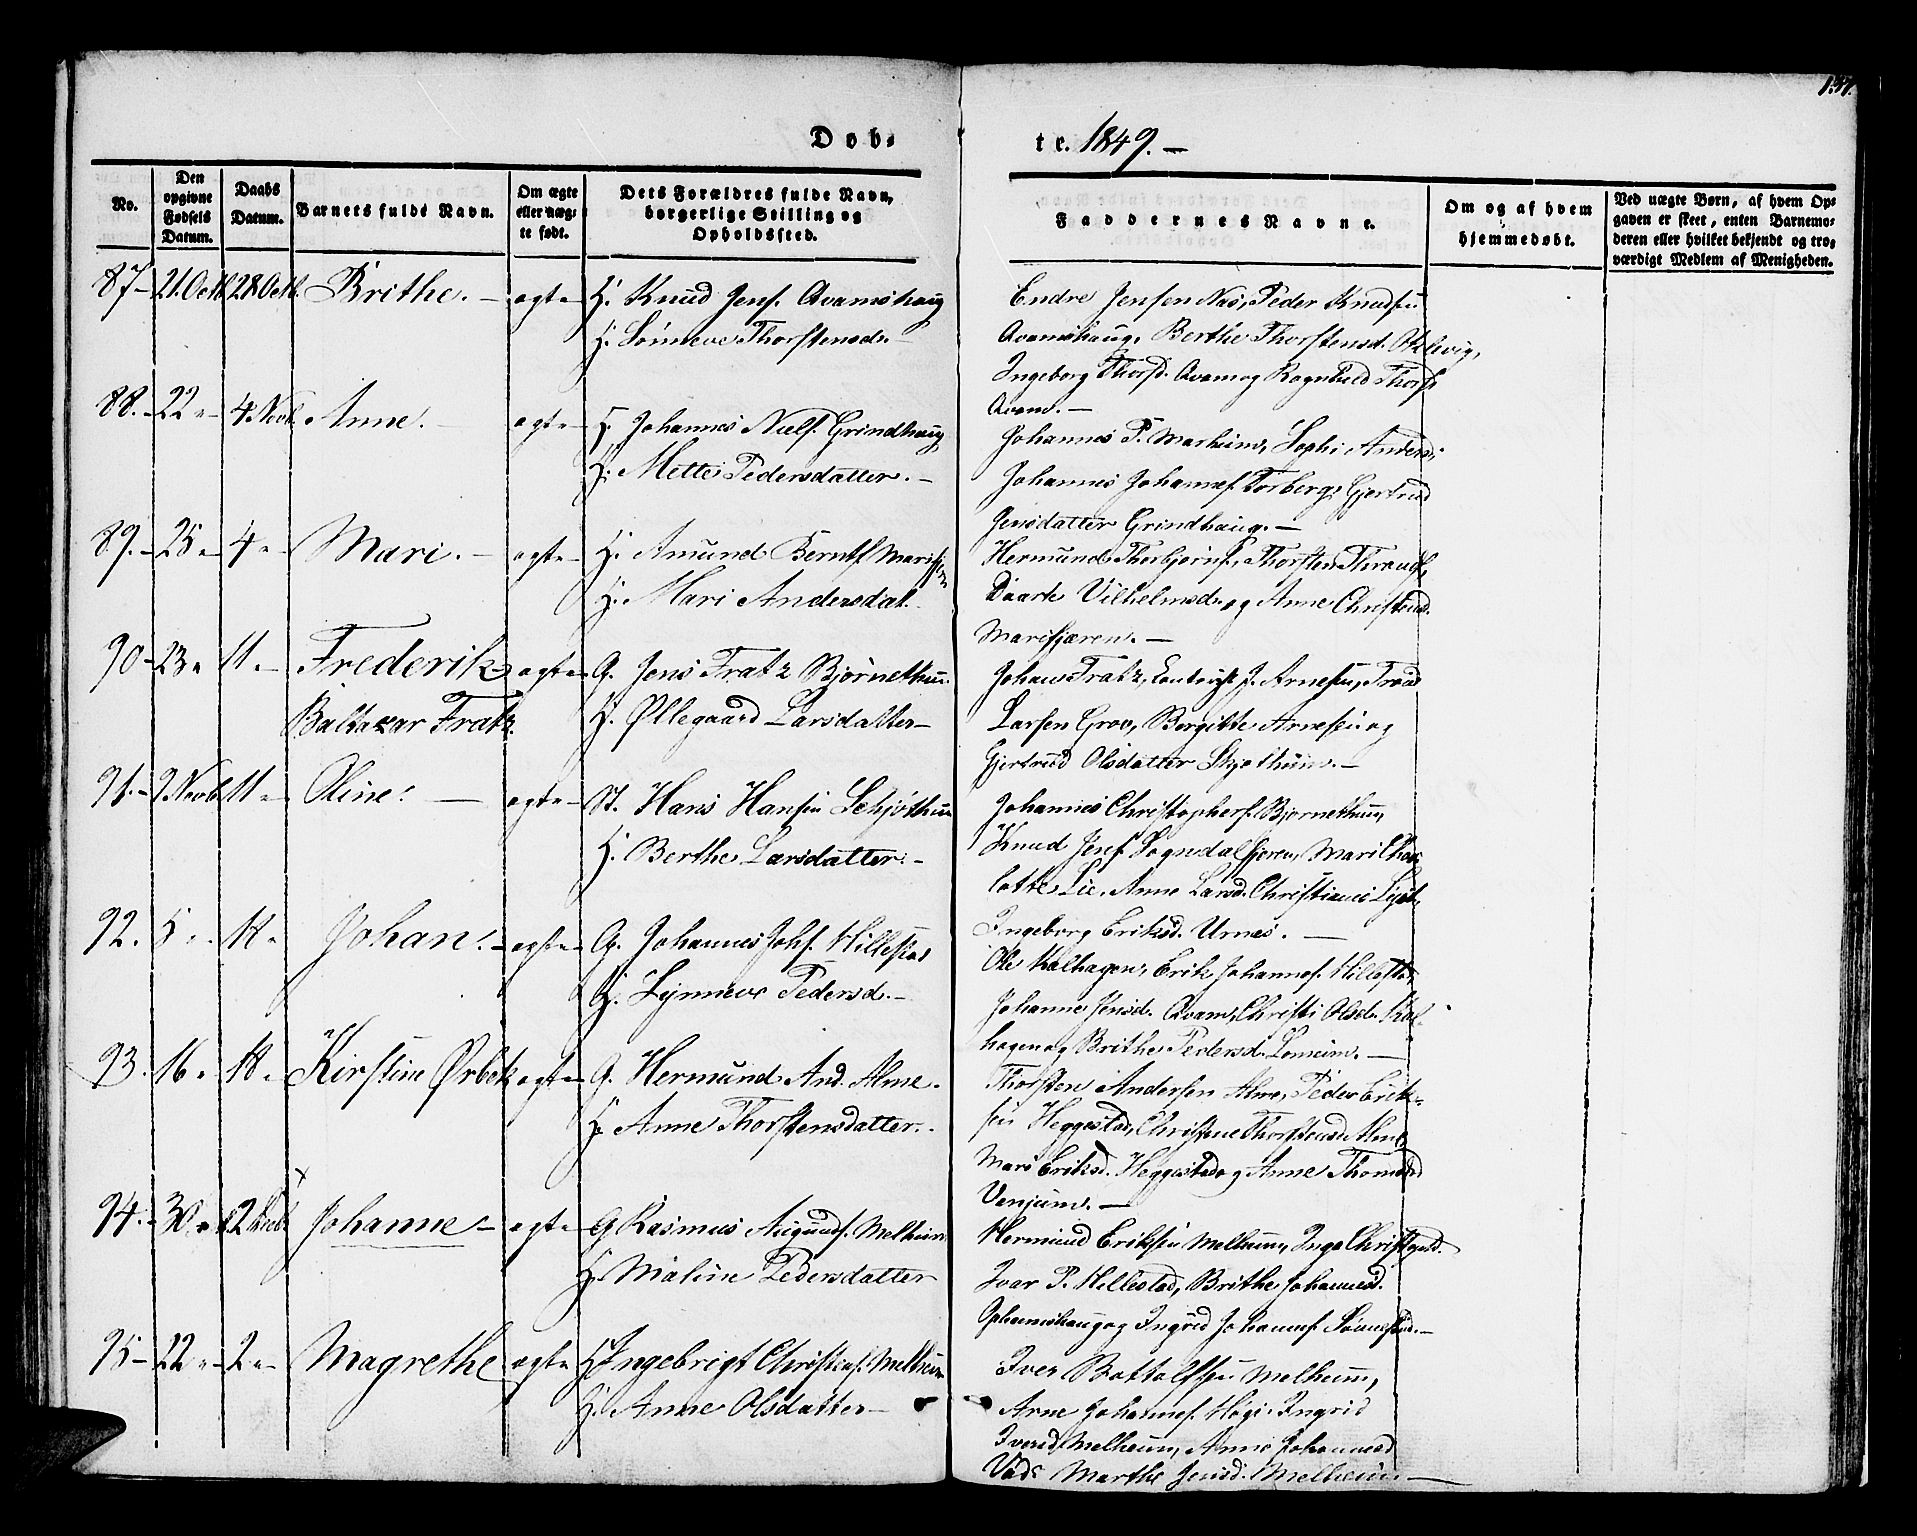 137.
Døb- te. 1849. —
No.
Den opgivne Fødsels Datum.
Daabs Datum.
Barnets fulde Navn.
Om ægte eller uæg- te født.
Dets Forældres fulde Navn, borgerlige Stilling og Opholdssted.
Faddernes Navne.
Om og af hvem hjemmedøbt.
Ved uægte Børn, af hvem Op-
gaven er skeet, enten Barnemo-
deren eller hvilket bekjendt og tro-
værdigt Medlem af Menigheden.
87- 21. Octb. 28 Octb. Brithe. - ægte H. Knud Jens. Qvamshaug
H. Sönneve Thorstensdr. -
Endre Jensen Næs, Peder Knudsen
Qvamshaug, Berthe Thorstensd.
Ingeborg Thorsd. Qvam og Rognhild Thors.
Qvam. -
88. - 22 " - 4 Novb. Anne. - ægte H. Johannes Niels. Grindhaug
H. Mette Pedersdatter. -
Johannes P. Marheim, Sophi Anders.
Johannes Johannes. Torberg, Gjertrud
Jensdatter Grindhaug. -
89. - 25 " - 4 " - Mari. - ægte H. Amund Bernts. Marifjæren
H. Mari Andersdat.
Hermund Thorbjørns., Thorsten Thronds.,
Daarte Vilhelmsd. og Anne Christens.
Marifjæren. -
90 - 23 " 11 " - Frederik ægte G. Jens Fratz Bjørnethun
Baltazar Fratz. H. Øllegaard Larsdatter -
Johan Fratz, J. Arnesen,
Larsen Grov, Bergitte Arnesen og
Gjertrud Olsdatter Skjøtheim. -
91. - 2 Novb. 11 " - Oline. - ægte - St. Hans Hansen Schjøtheim
H. Berthe Larsdatter. -
Johannes Christophers. Bjørnethun,
Knud Jens. Sogndalsfjøren, Mari Char-
lotte Lie, Anne Larsd.
Ingeborg Eriksd. Urnes. -
92. 5 " 18 " Johan. - ægte - G. Johannes Johs. Hillestad
H. Synneve Pedersd. -
Ole Kalhagen, Erik Johannes. Hillestad,
Johanne Jensd. Qvam, Christi Olsd. Kal-
hagen og Brithe Pedersd. Lomeim. -
93. 16 " 18 " Kirstine Ørbek ægte - G. Hermund And. Alme.
H. Anne Thorstensdatter. -
Thorsten Andersen Alme, Peder Erik-
sen Heggestad, Christine Thorstensd. Alme
Mari Eriksd. Heggestad og Anne Thomasd
Venjum. -
94. - 30 " 2 Decb. Johanne - ægte - G Rasmus Augunds. Melheim
H. Maline Pedersdatter
Hermund Eriksen Melheim, Inga
Ivar P. Hillestad, Brithe Johannesd.
og Ingrid Johannes.
95 - 22 " - 2 " - Magrethe ægte H. Ingebrigt Christens. Melheim
H. Anne Olsdatter -
Iver Bottolfsen Melheim,
Arne Johannes. Høgi, Ingrid
Iversd. Melheim, Anne Johannesd
Marthe Jensd. Melheim -